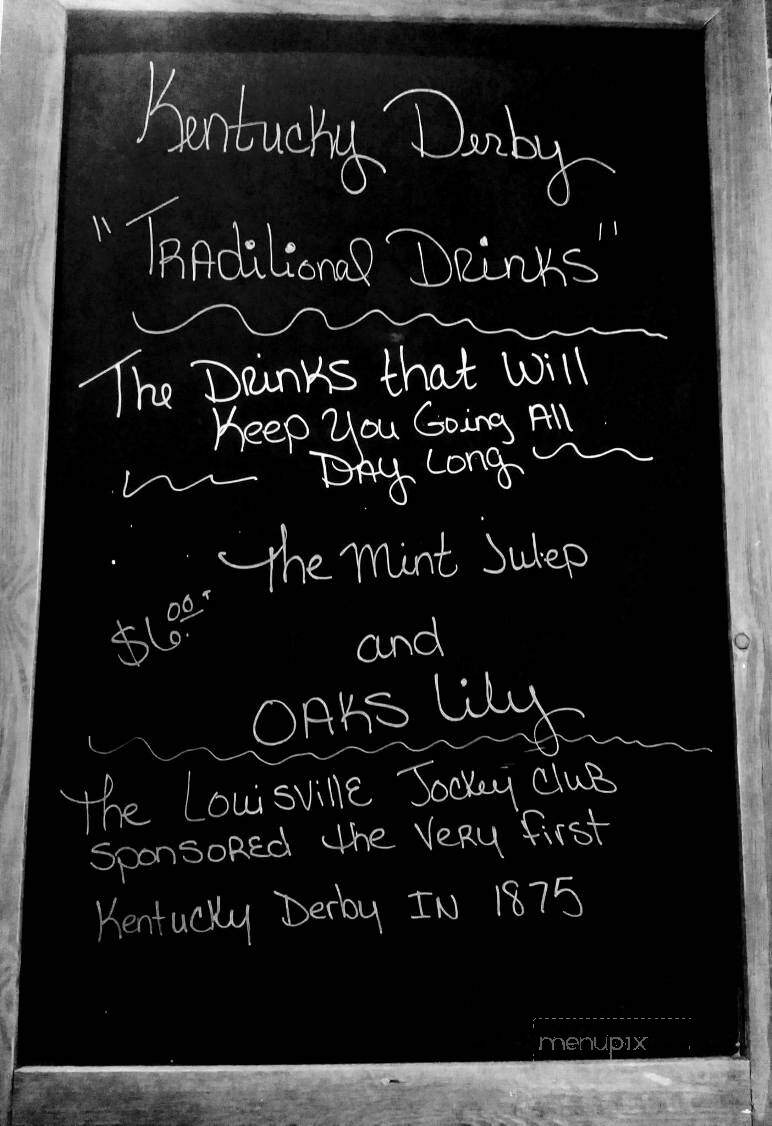 Kentucky Derby
"Traditional Drinks"
The Drinks that Will
Keep You Going All
Day Long
The Mint Julep
$6.00
and
Oaks Lily
The Louisville Jockey Club
Sponsored the Very first
Kentucky Derby IN 1875
menupix